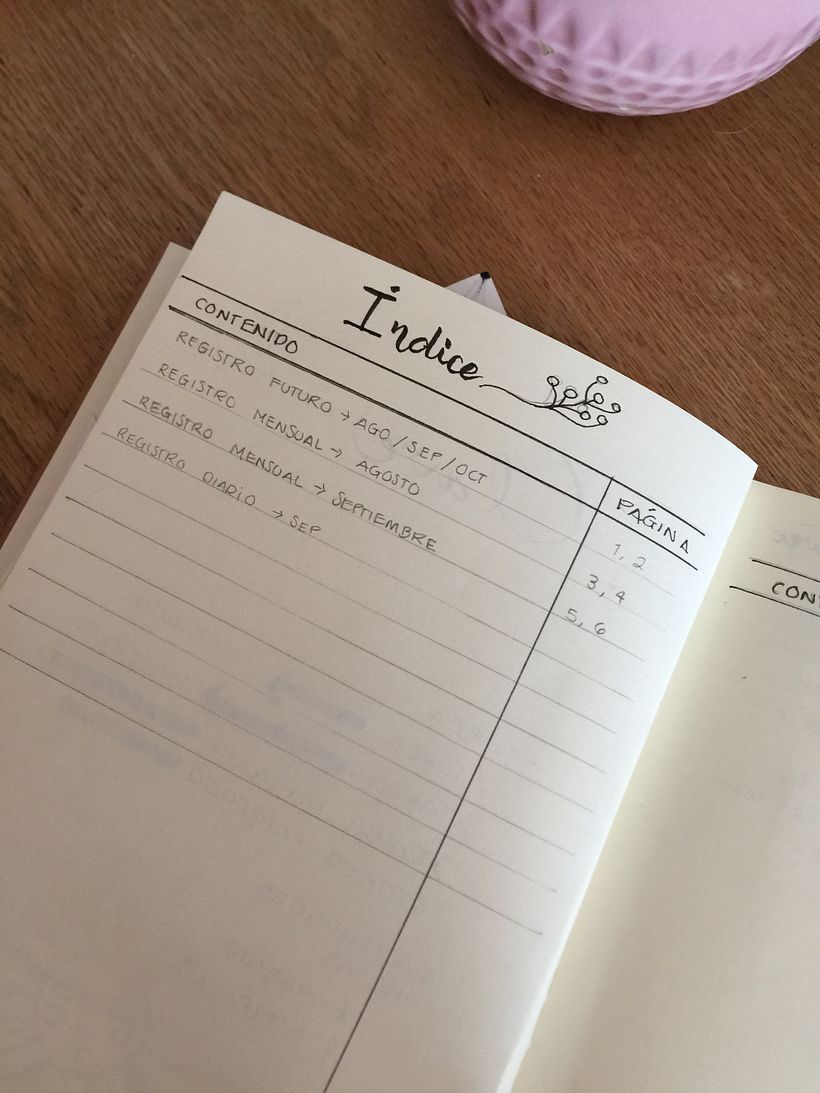 Índice
CONTENIDO PÁGINA
REGISTRO FUTURO → AGO/SEP/OCT 1, 2
REGISTRO MENSUAL → AGOSTO 3, 4
REGISTRO MENSUAL → SEPTIEMBRE 5, 6
REGISTRO DIARIO → SEP